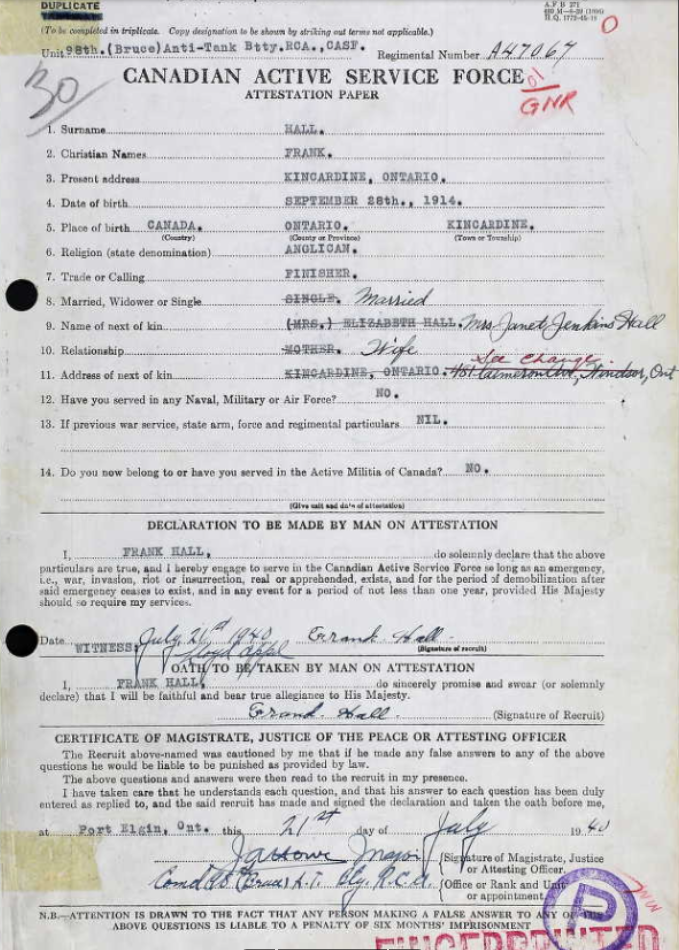 DUPLICATE
A.F.B 271
(To be completed in triplicate. Copy designation to be shown by striking out terms not applicable.)
O
Unit 98th.(Bruce)Anti-Tank Btty.RCA.,CASF. Regimental Number A47067
30
CANADIAN ACTIVE SERVICE FORCE
ATTESTATION PAPER
GNR
1. Surname HALL.
2. Christian Names FRANK.
3. Present address KINCARDINE, ONTARIO.
4. Date of birth SEPTEMBER 28th., 1914.
5. Place of birth CANADA. ONTARIO. KINCARDINE.
(Country) (County or Province) (Town or Township)
6. Religion (state denomination) ANGLICAN.
7. Trade or Calling FINISHER.
8. Married, Widower or Single SINGLE. Married
9. Name of next of kin (MRS.) ELIZABETH HALL. Mrs Janet Jenkins Hall
10. Relationship MOTHER. Wife
See change
11. Address of next of kin KINCARDINE, ONTARIO. 481 Cameron Ave, Windsor, Ont
12. Have you served in any Naval, Military or Air Force? NO.
13. If previous war service, state arm, force and regimental particulars NIL.
14. Do you now belong to or have you served in the Active Militia of Canada? NO.
(Give unit and date of attestation)
DECLARATION TO BE MADE BY MAN ON ATTESTATION
I, FRANK HALL, do solemnly declare that the above
particulars are true, and I hereby engage to serve in the Canadian Active Service Force so long as an emergency,
i.e., war, invasion, riot or insurrection, real or apprehended, exists, and for the period of demobilization after
said emergency ceases to exist, and in any event for a period of not less than one year, provided His Majesty
should so require my services.
Date July 21st 1940 Frank Hall.
WITNESS: Lloyd (Signature of recruit)
OATH TO BE TAKEN BY MAN ON ATTESTATION
I, FRANK HALL, do sincerely promise and swear (or solemnly
declare) that I will be faithful and bear true allegiance to His Majesty.
Frank Hall. (Signature of Recruit)
CERTIFICATE OF MAGISTRATE, JUSTICE OF THE PEACE OR ATTESTING OFFICER
The Recruit above-named was cautioned by me that if he made any false answers to any of the above
questions he would be liable to be punished as provided by law.
The above questions and answers were then read to the recruit in my presence.
I have taken care that he understands each question, and that his answer to each question has been duly
entered as replied to, and the said recruit has made and signed the declaration and taken the oath before me,
at Port Elgin, Ont. this 21st day of July 1940
Major (Signature of Magistrate, Justice
or Attesting Officer.
Comd 98 (Bruce) A.T. Bty. R.C.A. (Office or Rank and Unit
or appointment.
P
N.B.—ATTENTION IS DRAWN TO THE FACT THAT ANY PERSON MAKING A FALSE ANSWER TO ANY OF THE
ABOVE QUESTIONS IS LIABLE TO A PENALTY OF SIX MONTHS' IMPRISONMENT
FINGERPRINTED